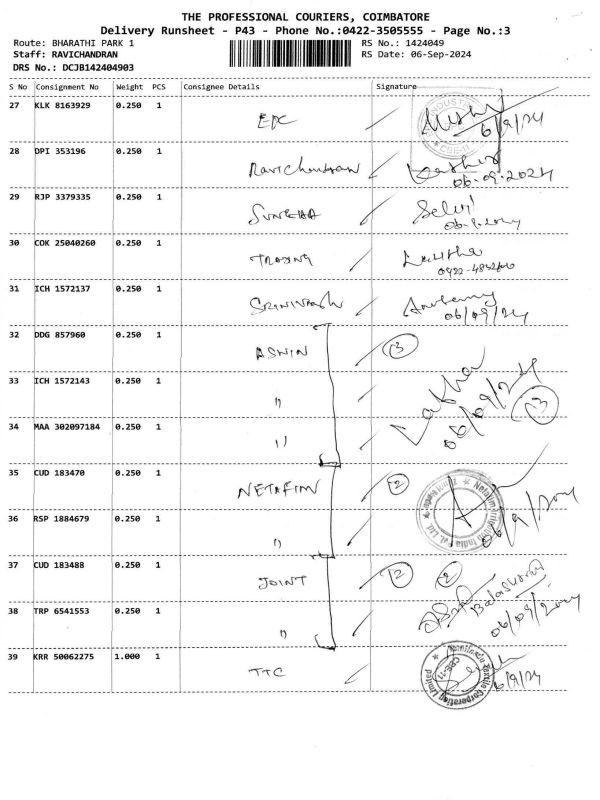 THE PROFESSIONAL COURIERS, COIMBATORE
Delivery Runsheet - P43 - Phone No.:0422-3505555 - Page No.:3
Route: BHARATHI PARK 1 RS No.: 1424049
Staff: RAVICHANDRAN RS Date: 06-Sep-2024
DRS No.: DCJB142404903
S No Consignment No Weight PCS Consignee Details Signature
27 KLK 8163929 0.250 1
6/9/24
28 DPI 353196 0.250 1
Ravichandran
06.09.2024
29 RJP 3379335 0.250 1
Selvi
30 COK 25040260 0.250 1
TRADING
31 ICH 1572137 0.250 1
06/09/24
32 DDG 857960 0.250 1
ASWIN 3
33 ICH 1572143 0.250 1
" 3
34 MAA 302097184 0.250 1
"
35 CUD 183470 0.250 1
NETAFIM 2
36 RSP 1884679 0.250 1
"
37 CUD 183488 0.250 1
JOINT 2 2
38 TRP 6541553 0.250 1
"
39 KRR 50062275 1.000 1
TTC
6/9/24